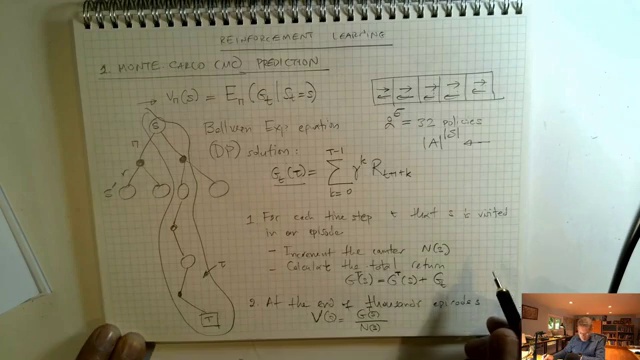 REINFORCEMENT LEARNING
1. MONTE CARLO (MC) PREDICTION
→ Vπ(s) = Eπ(Gt | St=s)
2^5 = 32 policies
|A|^|S| ←
Bellman Exp. equation
(DP) solution:
Gt(τ) = Σ_{k=0}^{T-1} γ^k Rt+1+k
S
π
r
s'
τ
T
1. For each time step t that s is visited
in an episode
- Increment the counter N(s)
- Calculate the total return
G^T(s) = G^T(s) + Gt
2. At the end of thousands episodes
V(s) = G(s) / N(s)